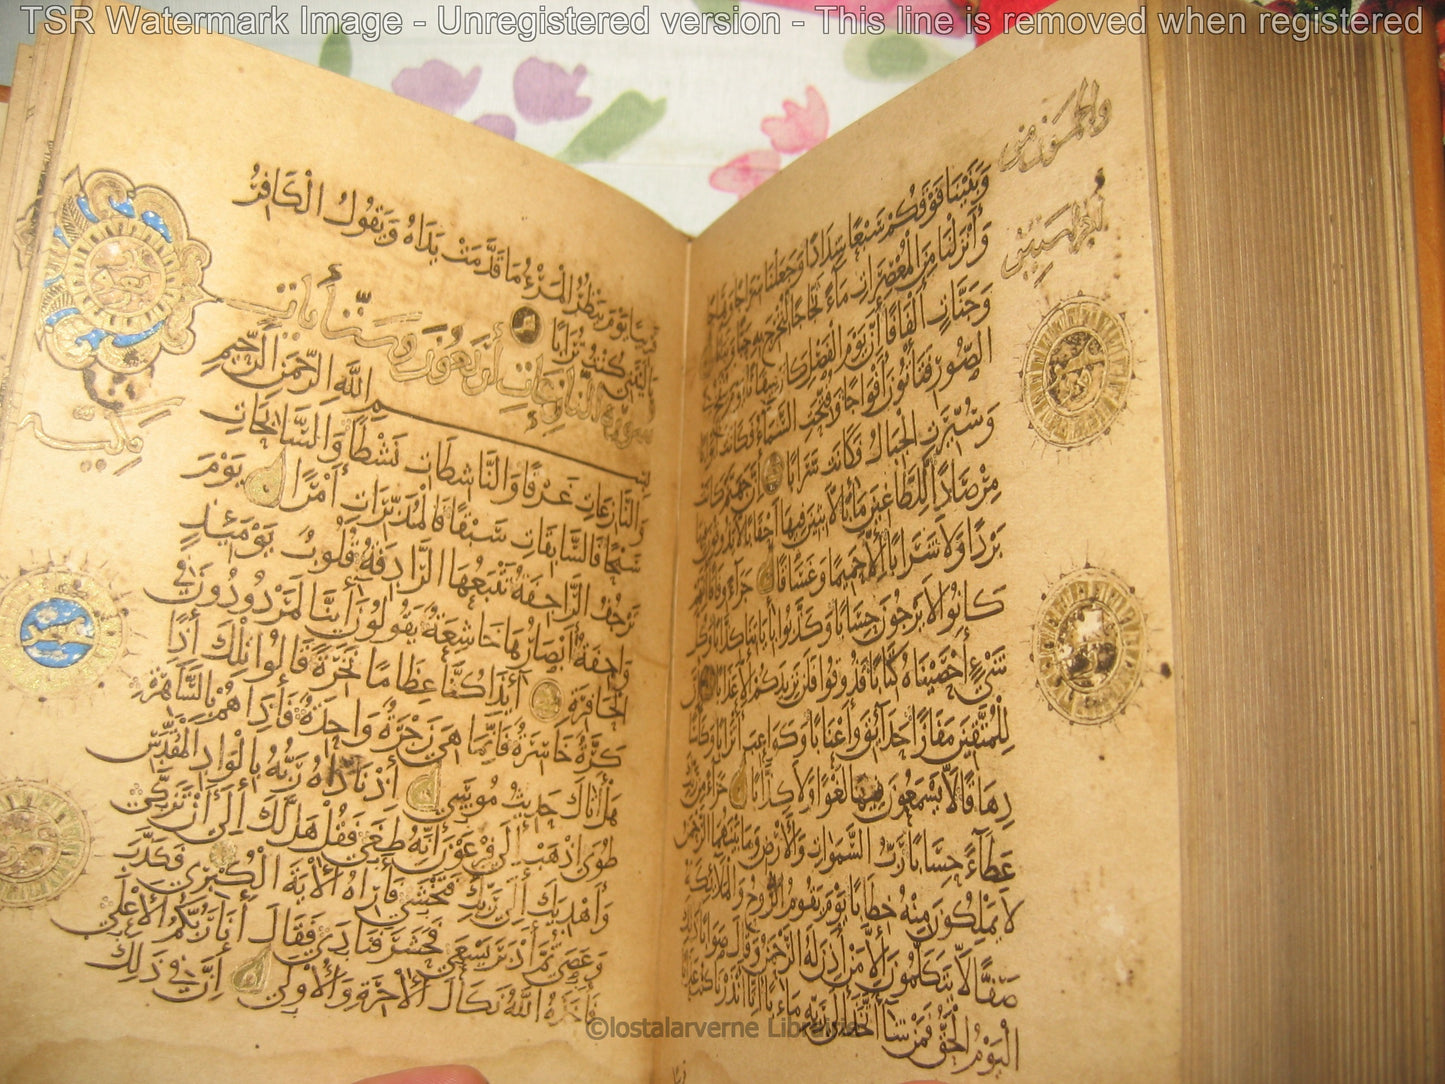 TSR Watermark Image - Unregistered version - This line is removed when registered
وَبَنَيْنَا فَوْقَكُمْ سَبْعًا شِدَادًا وَجَعَلْنَا سِرَاجًا
وَأَنْزَلْنَا مِنَ الْمُعْصِرَاتِ مَاءً ثَجَّاجًا لِنُخْرِجَ بِهِ حَبًّا
وَجَنَّاتٍ أَلْفَافًا إِنَّ يَوْمَ الْفَصْلِ كَانَ مِيقَاتًا يَوْمَ
الصُّورِ فَتَأْتُونَ أَفْوَاجًا وَفُتِحَتِ السَّمَاءُ فَكَانَتْ أَبْوَابًا
وَسُيِّرَتِ الْجِبَالُ فَكَانَتْ سَرَابًا إِنَّ جَهَنَّمَ كَانَتْ
مِرْصَادًا لِلطَّاغِينَ مَآبًا لَابِثِينَ فِيهَا أَحْقَابًا لَا يَذُوقُونَ فِيهَا
بَرْدًا وَلَا شَرَابًا إِلَّا حَمِيمًا وَغَسَّاقًا جَزَاءً وِفَاقًا إِنَّهُمْ
كَانُوا لَا يَرْجُونَ حِسَابًا وَكَذَّبُوا بِآيَاتِنَا كِذَّابًا وَكُلَّ
شَيْءٍ أَحْصَيْنَاهُ كِتَابًا فَذُوقُوا فَلَنْ نَزِيدَكُمْ إِلَّا عَذَابًا إِنَّ
لِلْمُتَّقِينَ مَفَازًا حَدَائِقَ وَأَعْنَابًا وَكَوَاعِبَ أَتْرَابًا وَكَأْسًا
دِهَاقًا لَا يَسْمَعُونَ فِيهَا لَغْوًا وَلَا كِذَّابًا جَزَاءً مِنْ رَبِّكَ
عَطَاءً حِسَابًا رَبِّ السَّمَوَاتِ وَالْأَرْضِ وَمَا بَيْنَهُمَا الرَّحْمَنِ
لَا يَمْلِكُونَ مِنْهُ خِطَابًا يَوْمَ يَقُومُ الرُّوحُ وَالْمَلَائِكَةُ
صَفًّا لَا يَتَكَلَّمُونَ إِلَّا مَنْ أَذِنَ لَهُ الرَّحْمَنُ وَقَالَ صَوَابًا ذَلِكَ
الْيَوْمُ الْحَقُّ فَمَنْ شَاءَ اتَّخَذَ إِلَى رَبِّهِ مَآبًا إِنَّا أَنْذَرْنَاكُمْ عَذَابًا
قَرِيبًا يَوْمَ يَنْظُرُ الْمَرْءُ مَا قَدَّمَتْ يَدَاهُ وَيَقُولُ الْكَافِرُ
يَا لَيْتَنِي كُنْتُ تُرَابًا
سورة النازعات أربعون وست آيات
مكية
بسم اللَّهِ الرَّحْمَنِ الرَّحِيمِ
وَالنَّازِعَاتِ غَرْقًا وَالنَّاشِطَاتِ نَشْطًا وَالسَّابِحَاتِ
سَبْحًا فَالسَّابِقَاتِ سَبْقًا فَالْمُدَبِّرَاتِ أَمْرًا يَوْمَ
تَرْجُفُ الرَّاجِفَةُ تَتْبَعُهَا الرَّادِفَةُ قُلُوبٌ يَوْمَئِذٍ
وَاجِفَةٌ أَبْصَارُهَا خَاشِعَةٌ يَقُولُونَ أَئِنَّا لَمَرْدُودُونَ فِي
الْحَافِرَةِ أَئِذَا كُنَّا عِظَامًا نَخِرَةً قَالُوا تِلْكَ إِذًا
كَرَّةٌ خَاسِرَةٌ فَإِنَّمَا هِيَ زَجْرَةٌ وَاحِدَةٌ فَإِذَا هُمْ بِالسَّاهِرَةِ
هَلْ أَتَاكَ حَدِيثُ مُوسَى إِذْ نَادَاهُ رَبُّهُ بِالْوَادِ الْمُقَدَّسِ
طُوًى اذْهَبْ إِلَى فِرْعَوْنَ إِنَّهُ طَغَى فَقُلْ هَلْ لَكَ إِلَى أَنْ تَزَكَّى
وَأَهْدِيَكَ إِلَى رَبِّكَ فَتَخْشَى فَأَرَاهُ الْآيَةَ الْكُبْرَى فَكَذَّبَ
وَعَصَى ثُمَّ أَدْبَرَ يَسْعَى فَحَشَرَ فَنَادَى فَقَالَ أَنَا رَبُّكُمُ الْأَعْلَى
فَأَخَذَهُ اللَّهُ نَكَالَ الْآخِرَةِ وَالْأُولَى إِنَّ فِي ذَلِكَ
©lostalarverne Libraries